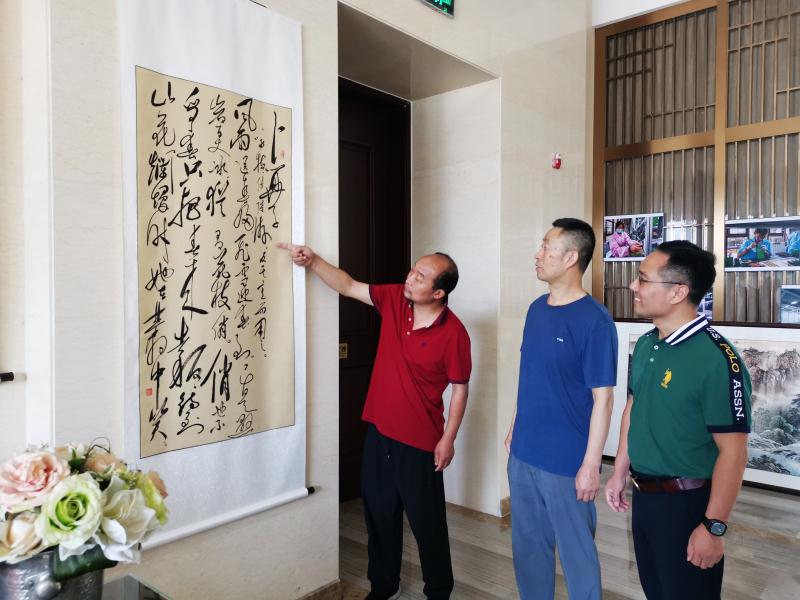 卜算子
风雨送春归飞雪迎春到已是悬
崖百丈冰犹有花枝俏俏也不
争春只把春来报待到
山花烂漫时她在丛中笑
.S. POLO ASSN.